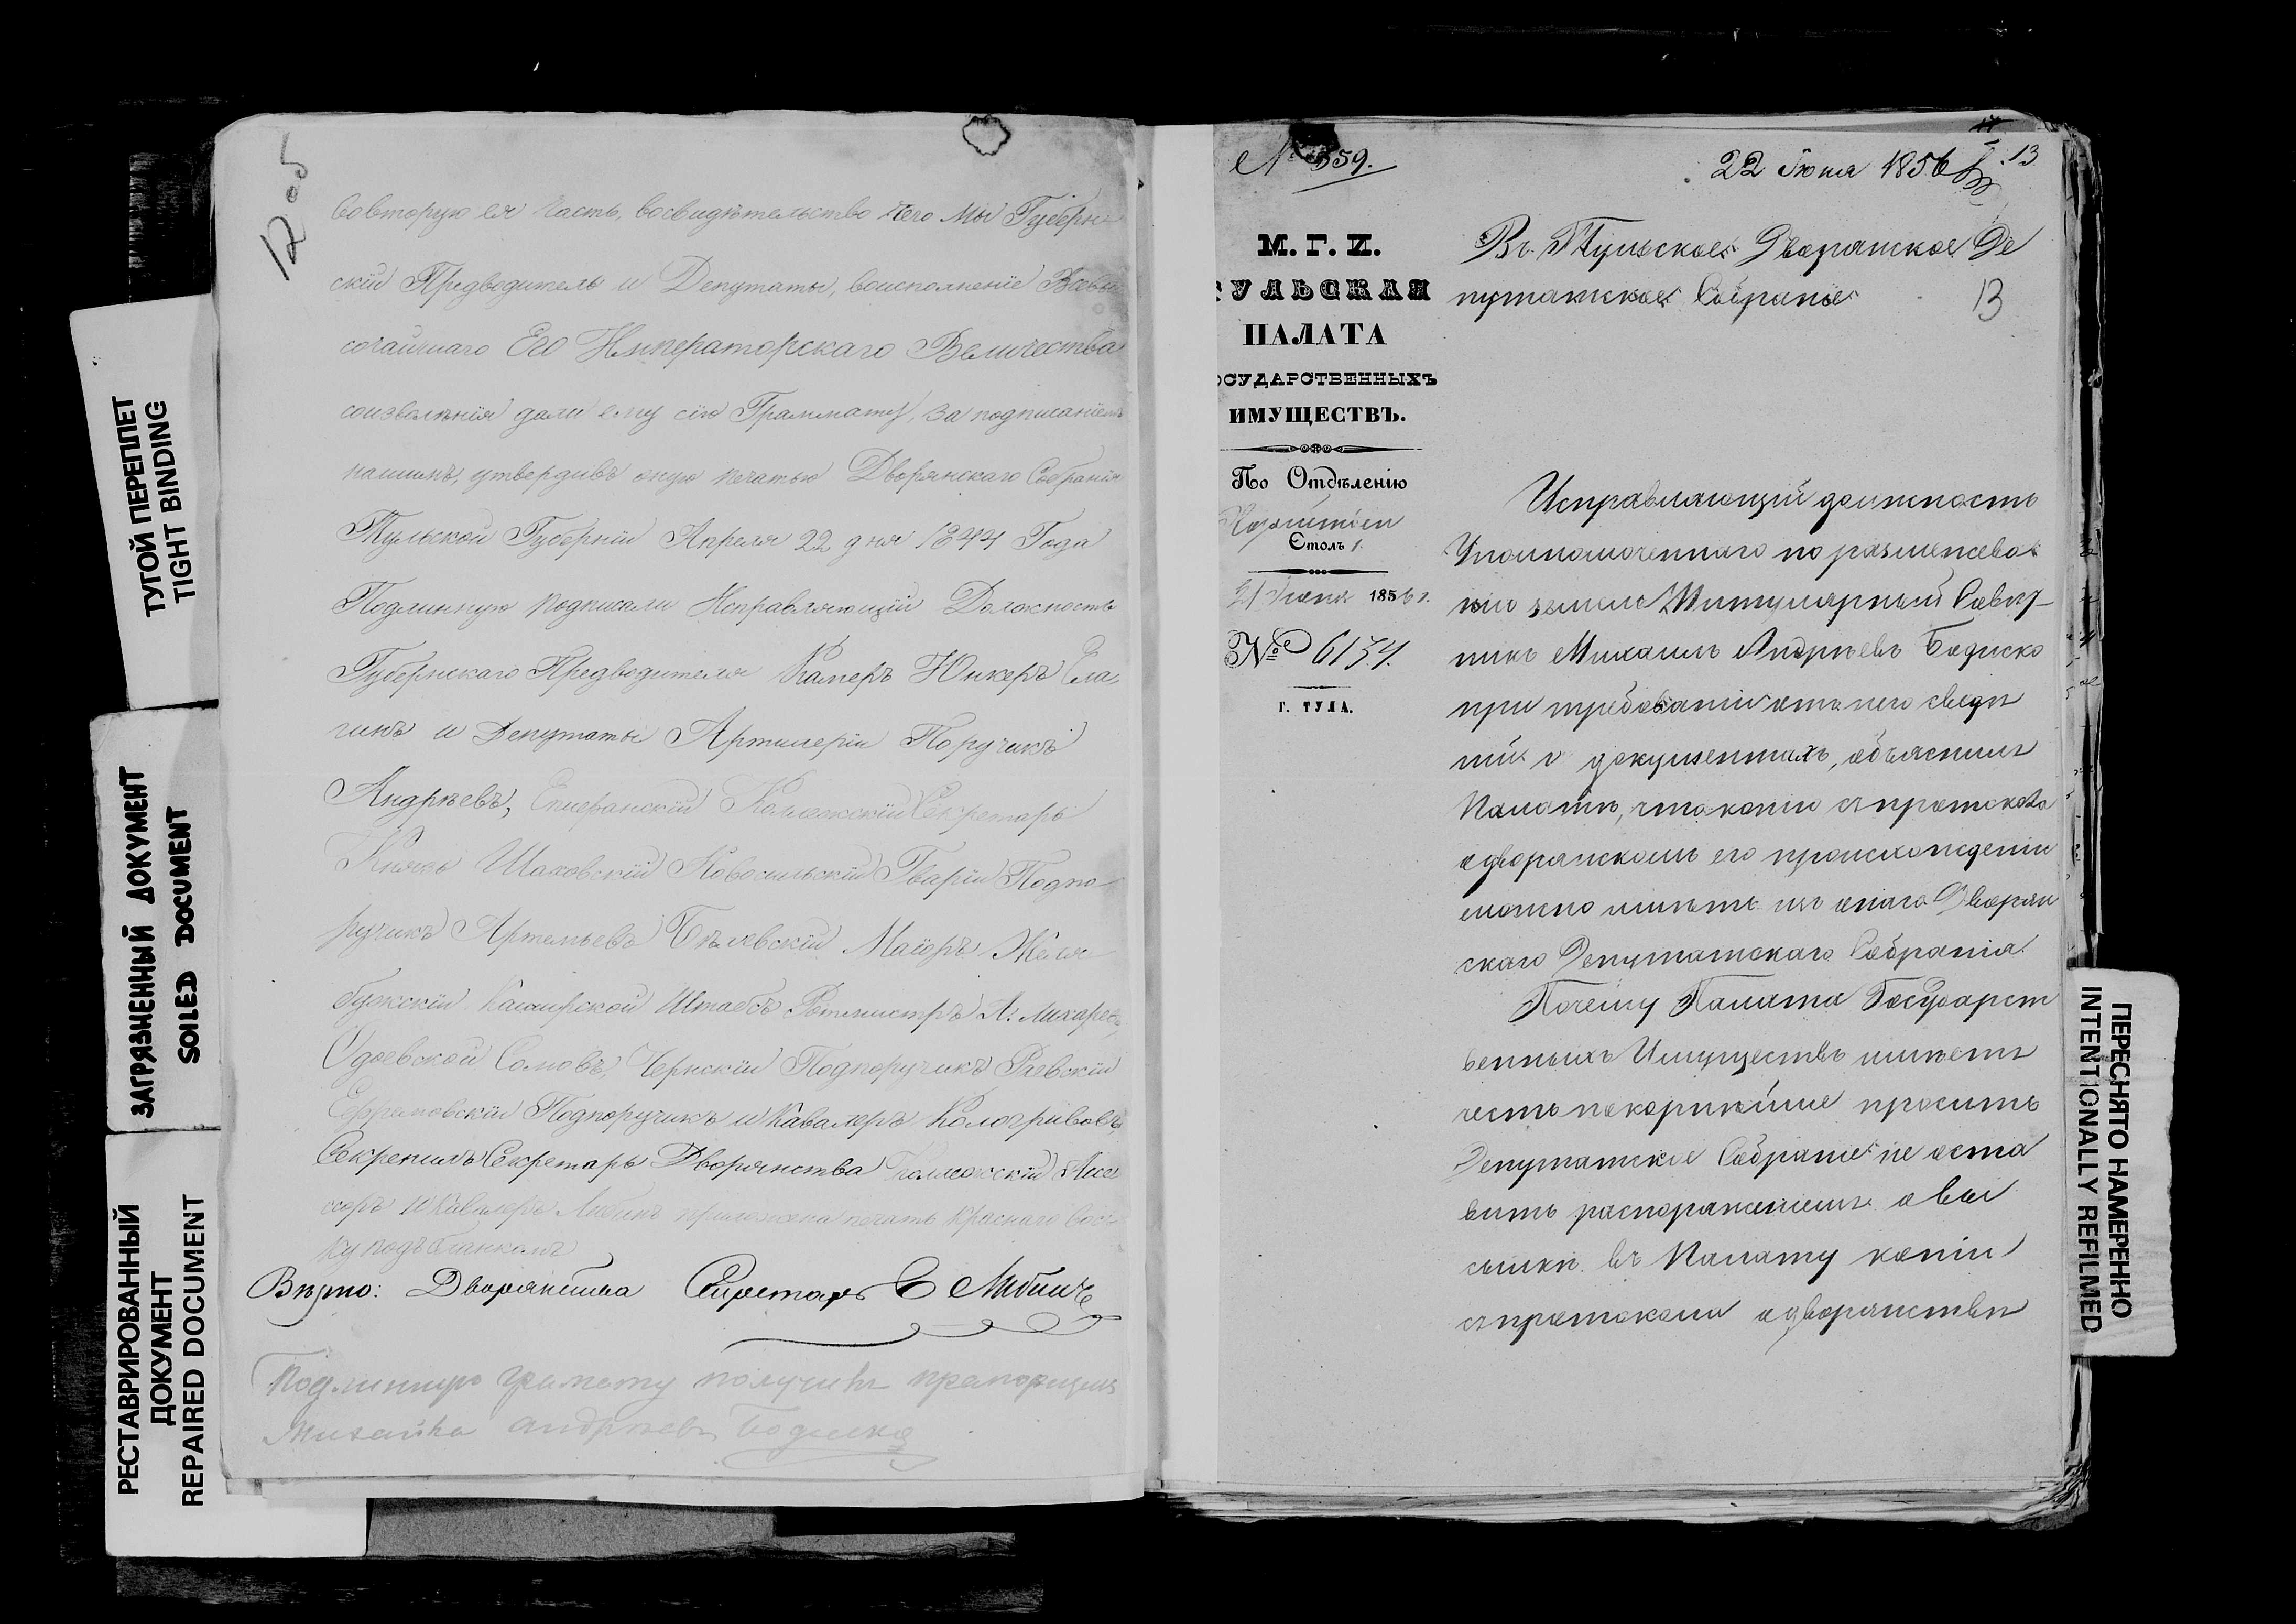 12 об
Вовторую ея часть, восвидѣтельство чего Мы Губерн
скій Предводитель и Депутаты, воисполненіе Всевы
сочайшаго Его Императорскаго Величества
соизволѣнія дали ему сію Граммату, за подписаніемъ
нашимъ, утвердивъ оную печатью Дворянскаго Собранія
Тульской Губерніи Апреля 22 дня 1844 Года
Подлинную подписали Исправляющій Должность
Губернскаго Предводителя Камеръ Юнкеръ Ела
гинъ и Депутаты Артилеріи Поручикъ
Андрѣевъ, Епифанскій Колежскій Секретарь
Князь Шаховскій Новосильскій Гвардіи Подпо
ручикъ Артемьевъ Бѣлевскій Маіоръ Желя
бужскій Каширской Штабсъ Ротмистръ Лихаревъ
Одоевской Сомовъ, Чернскій Подпоручикъ Раевскій
Ефремовскій Подпоручикъ и Кавалеръ Кологривовъ,
Секрепилъ Секретарь Дворянства Коллежскій Асе
соръ и Кавалеръ Любинъ приложена печать Краснаго Вос
ку подъ бланкомъ
Вѣрно: Дворянства Секретарь
Подлинную грамоту получилъ прапорщикъ
Михайла Андрѣевъ Бодиско
№ 359.
22 Іюня 1856
13
М. Г. И.
УЛЬСКАЯ
ПАЛАТА
ОСУДАРСТВЕННЫХЪ
ИМУЩЕСТВЪ.
По Отдѣленію
Столъ 1.
21 Іюня 1856 г.
№
Г. ТУЛА.
Въ Тульское Дворянское Де
путатское Собраніе
13
Исправляющій должность
Уполномоченнаго по размежева
нію земель Титулярный Совѣт
никъ Михаилъ Андрѣевъ Бодиско
при требованіи отъ него сведѣ
ній о документахъ, объяснилъ
Палатѣ, что копію съ протокола
о дворянскомъ его происхожденіи
можно имѣть изъ онаго Дворян
скаго Депутатскаго Собранія.
Почему Палата Государст
венныхъ Имуществъ имѣетъ
честь покорнѣйше просить
Депутатское Собраніе не оста
вить распоряженіемъ о вы
сылкѣ въ Палату копіи
съ протокола о дворянствѣ
ТУГОЙ ПЕРЕПЛЕТ
TIGHT BINDING
ЗАГРЯЗНЕННЫЙ ДОКУМЕНТ
SOILED DOCUMENT
РЕСТАВРИРОВАННЫЙ
ДОКУМЕНТ
REPAIRED DOCUMENT
ПЕРЕСНЯТО НАМЕРЕННО
INTENTIONALLY REFILMED